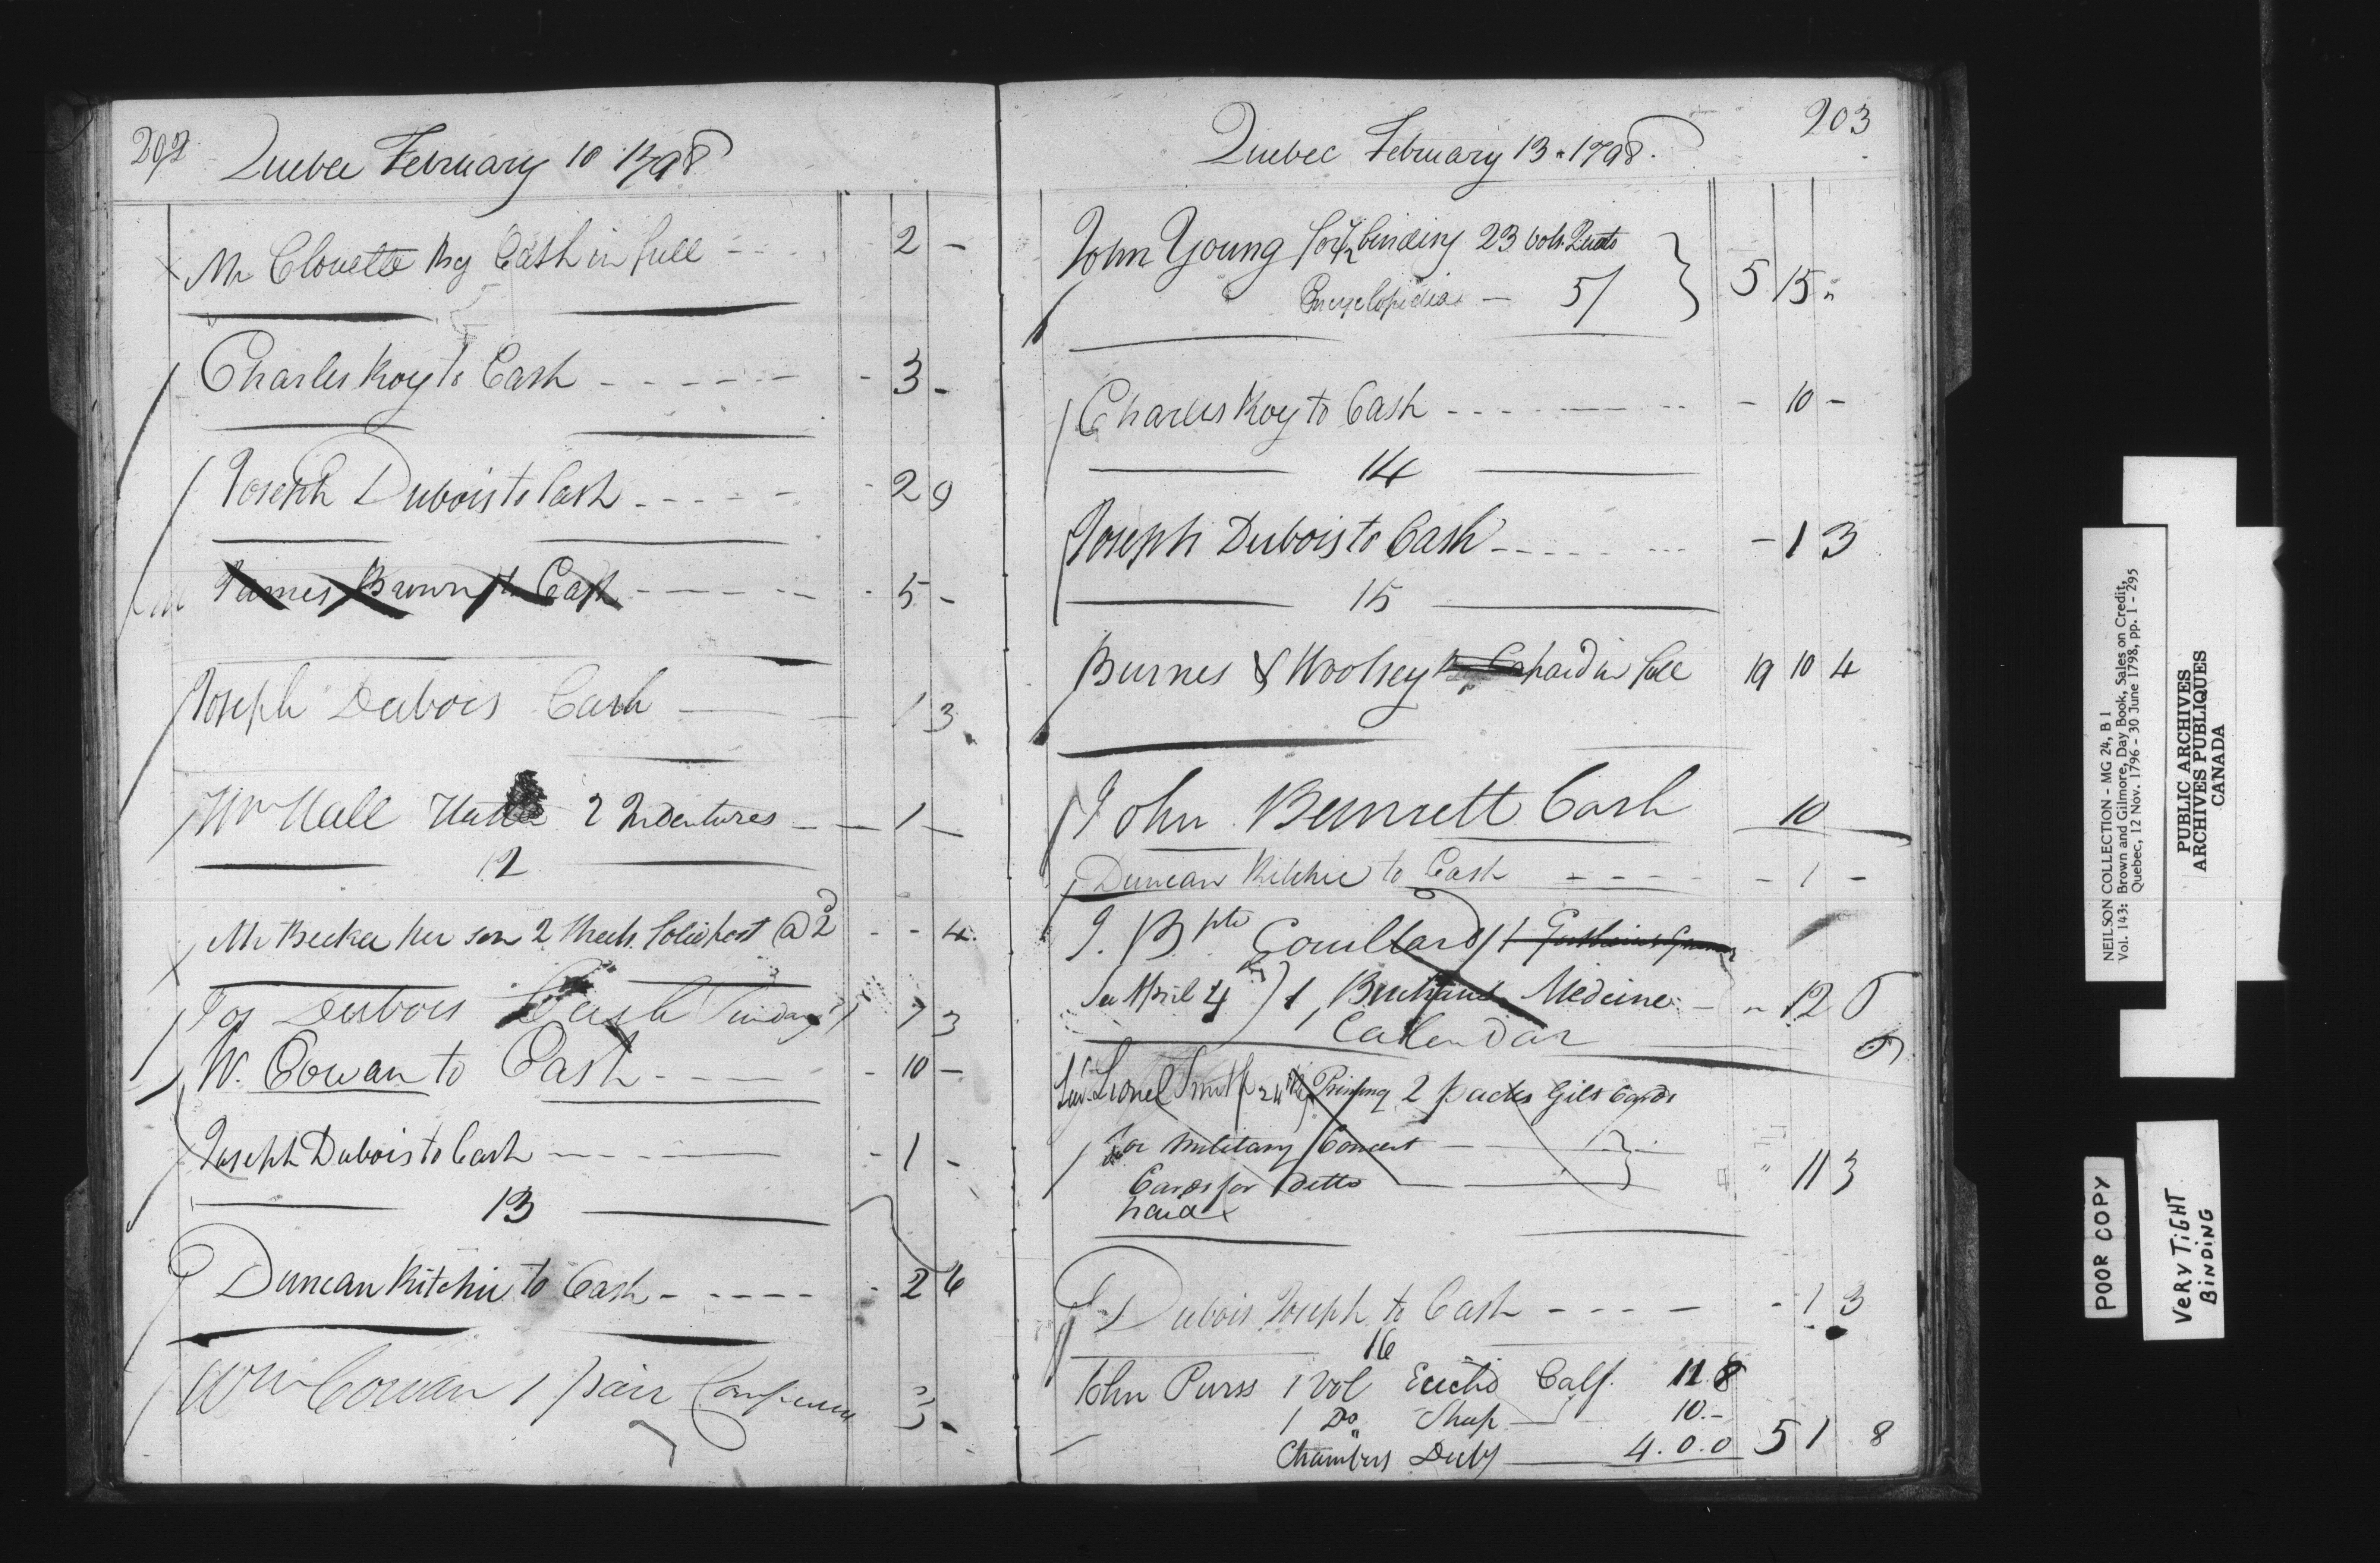 202
Quebec February 10 1798
Mr Clouette By Cash in full - - - 2 -
Charles Roy to Cash - - - - - - 3 -
Joseph Dubois to Cash - - - - - 2 9
James Brown to Cash - - - - - - 5 -
Joseph Dubois Cash — — 1 3
Wm Hall 2 Indentures — — 1 —
12
Mr Becker per son 2 Sheets folio post @ 2d - - 4
Jos Dubois Cash Sunday 7 3
W. Cowan to Cash - - - - 10 -
Joseph Dubois to Cash - - - - - 1 -
13
Duncan Ritchie to Cash - - - - - - 2 6
Wm Cowan 1 pair 3 -
Quebec February 13 1798.
203
John Young for ½ binding 23 vols. Quarto
Encyclopedia — 5/ } 5 15 "
Charles Roy to Cash - - - - - - 10 -
14
Joseph Dubois to Cash - - - - - 1 3
15
Burnes & Woolsey paid in full 19 10 4
John Bennett Cash 10
Duncan Ritchie to Cash - - - - - 1 -
J. Bpte Couillard 1
See April 4 } 1 Buchan's Medicine - " 12 6
Calendar 6
Lieu. Lionel Smith 24th Printing 2 packs Gilt Cards
for Military Concert —
Cards for Ditto — } " 11 3
paid
Dubois Joseph to Cash - - - - - 1 3
16
John Purss 1 Vol Euclid Calf. 11.8
1 Do " Sheep — 10.-
Chambers Duty — 4.0.0 5 1 8
NEILSON COLLECTION - MG 24, B 1
Vol. 143: Brown and Gilmore, Day Book, Sales on Credit,
Quebec, 12 Nov. 1796 - 30 June 1798, pp. 1 - 295
PUBLIC ARCHIVES
ARCHIVES PUBLIQUES
CANADA
POOR COPY
VERY TIGHT
BINDING